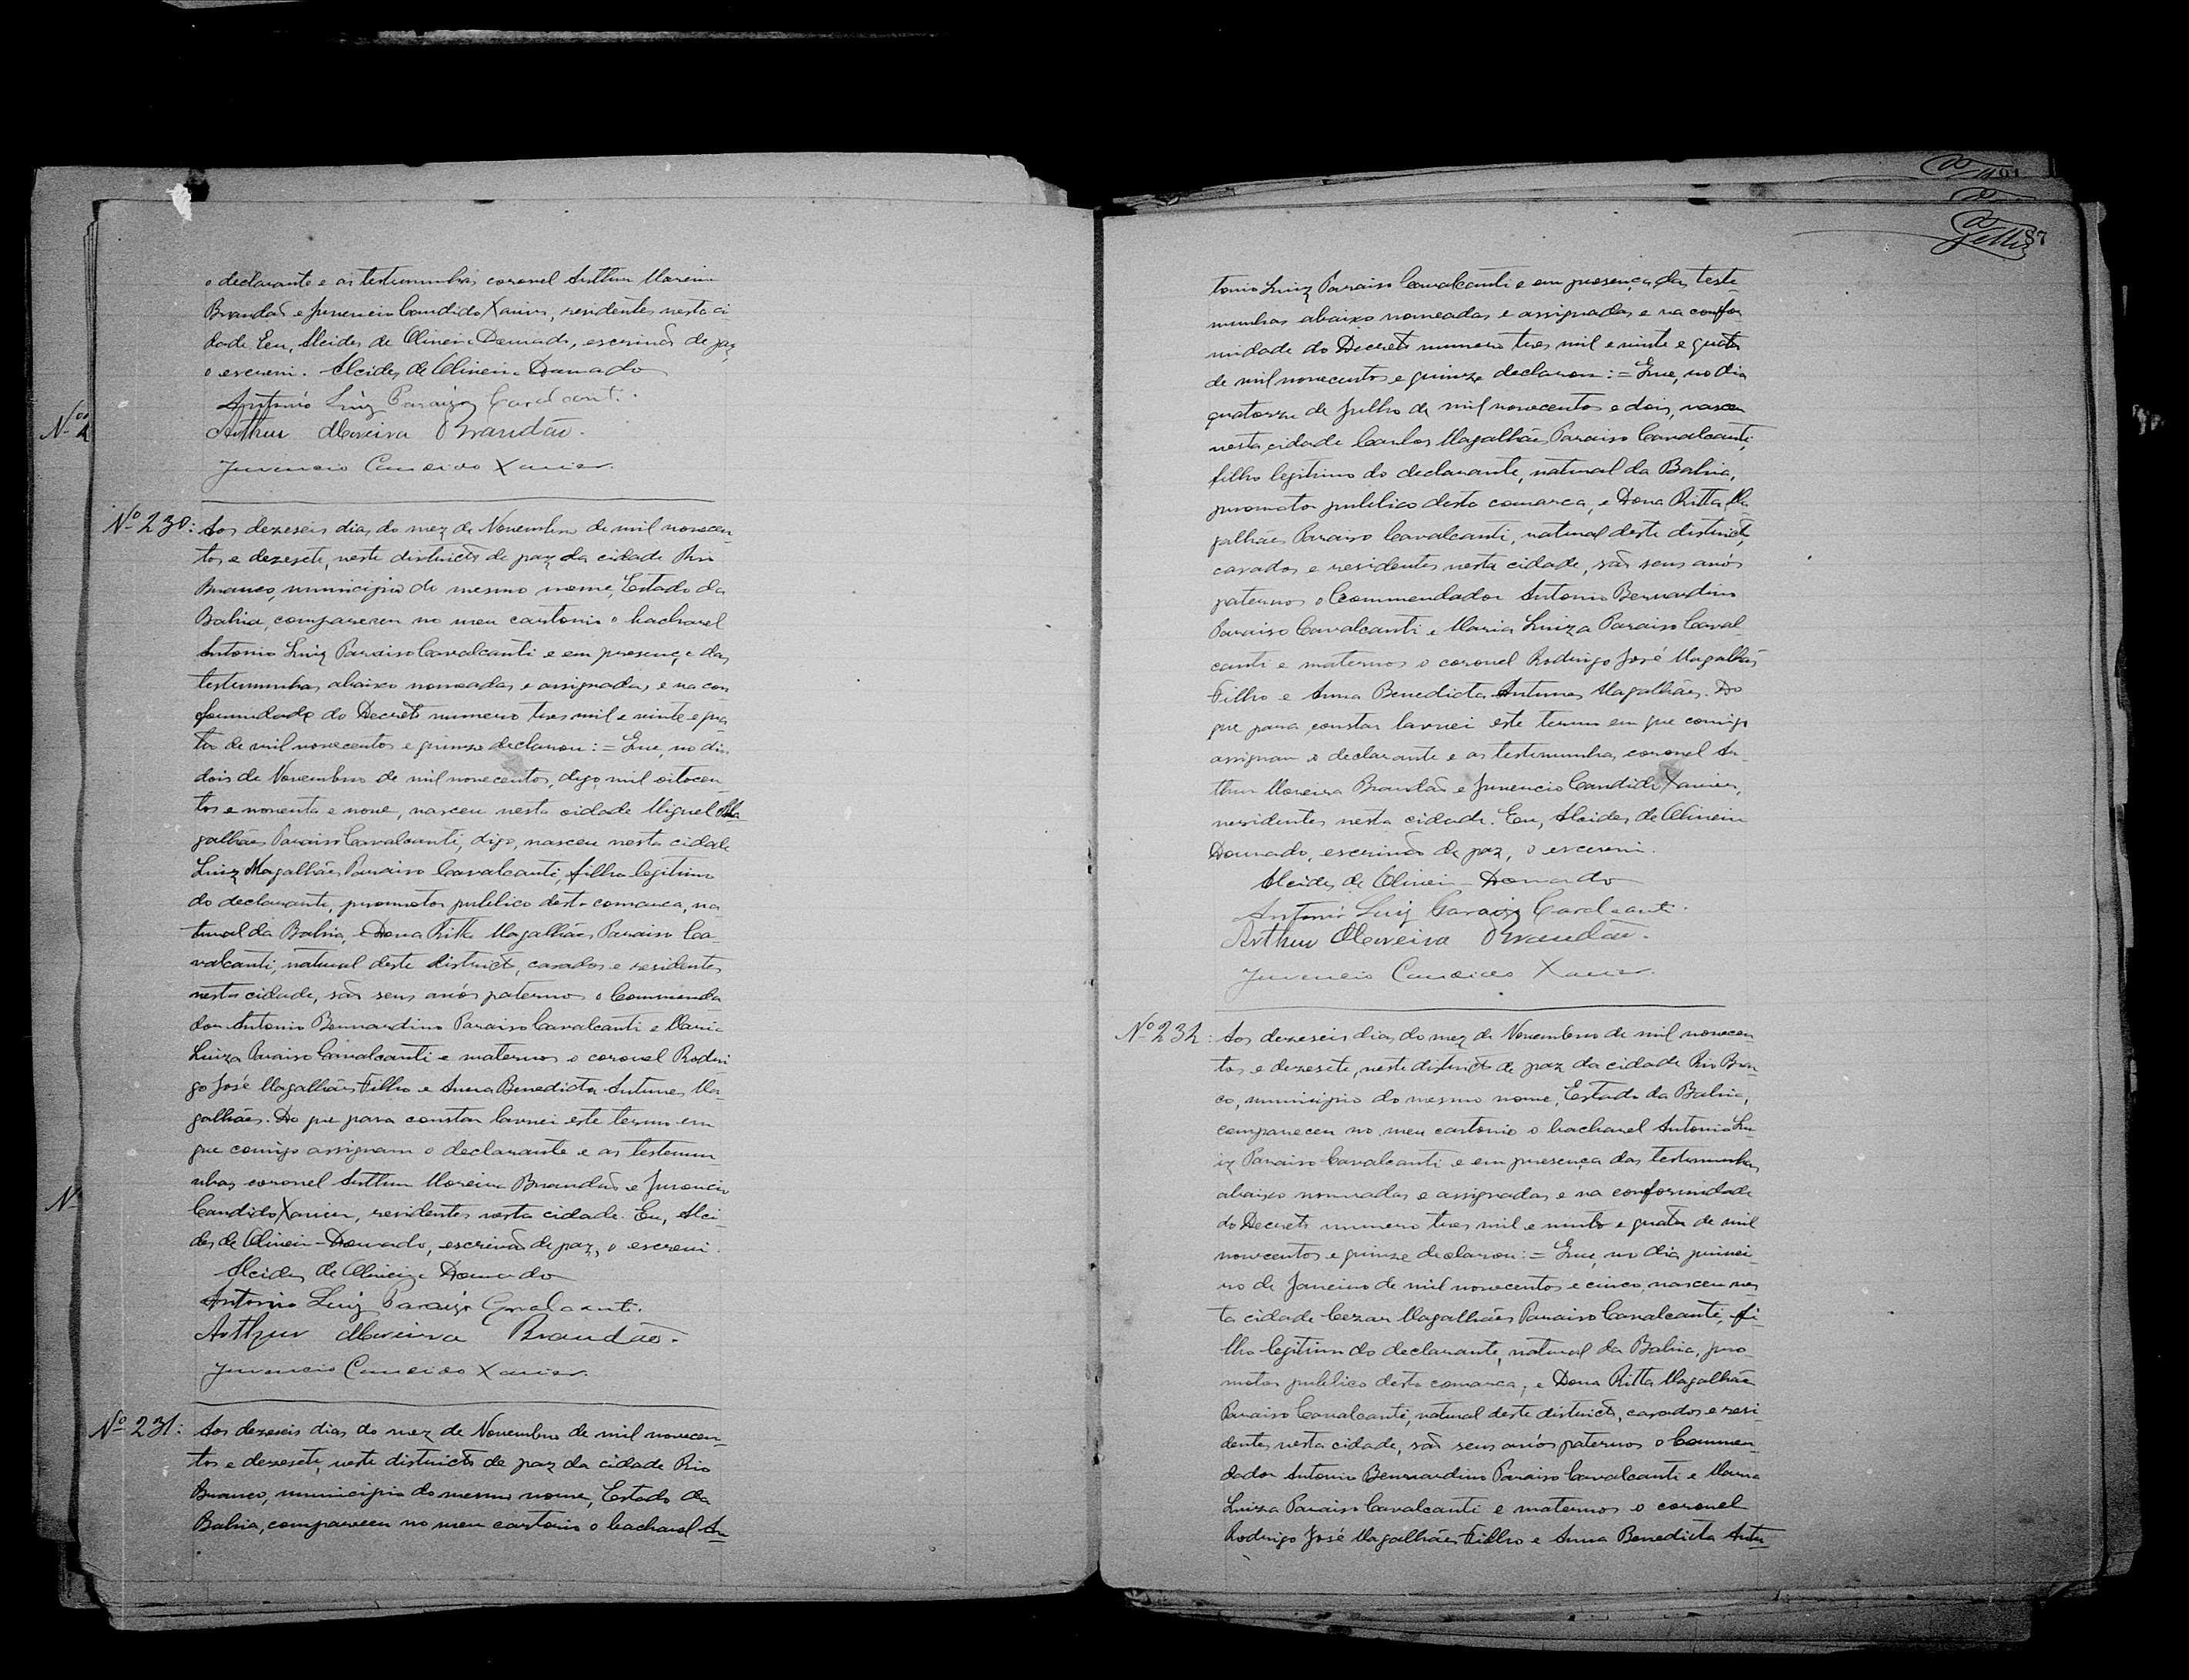 o declarante e as testemunhas coronel Arthur Moreira
Brandão e Juvencio Candido Xavier, residentes nesta ci
dade. Eu, Alcides de Oliveira Dourado, escrivão de paz
o escrevi. Alcides de Oliveira Dourado
Antonio Luiz Paraizo Cavalcanti.
Arthur Moreira Brandão.
Juvencio Candido Xavier.
Nº 230: Aos dezeseis dias do mez de Novembro de mil novecen-
tos e dezesete, neste districto de paz da cidade Rio
Branco, municipio do mesmo nome, Estado da
Bahia, compareceu no meu cartorio o bacharel
Antonio Luiz Paraiso Cavalcanti e em presença das
testemunhas abaixo nomeadas e assignadas e na con
formidade do Decreto numero tres mil e vinte e qua
tro de mil novecentos e quinze declarou: = Que, no dia
dois de Novembro de mil novecentos, digo, mil oitocen-
tos e noventa e nove, nasceu nesta cidade Miguel Ma
galhães Paraiso Cavalcanti, digo, nasceu nesta cidade
Luiz Magalhães Paraiso Cavalcanti, filho legitimo
do declarante, promotor publico desta comarca, na-
tural da Bahia, e Dona Ritta Magalhães Paraiso Ca-
valcanti, natural deste districto, casados e residentes
nesta cidade, são seus avós paternos o Commenda
dor Antonio Bernardino Paraiso Cavalcanti e Maria
Luiza Paraiso Cavalcanti e maternos o coronel Rodri
go José Magalhães Filho e Anna Benedicta Antunes Ma-
galhães. Do que para constar lavrei este termo em
que comigo assignam o declarante e as testemu-
nhas coronel Arthur Moreira Brandão e Juvencio
Candido Xavier, residentes nesta cidade. Eu, Alci-
des de Oliveira Dourado, escrivão de paz, o escrevi.
Alcides de Oliveira Dourado
Antonio Luiz Paraizo Cavalcanti.
Arthur Moreira Brandão.
Juvencio Candido Xavier.
Nº 231: Aos dezeseis dias do mez de Novembro de mil novecen-
tos e dezesete, neste districto de paz da cidade Rio
Branco, municipio do mesmo nome, Estado da
Bahia, compareceu no meu cartorio o bacharel An
87
tonio Luiz Paraiso Cavalcanti e em presença das teste-
munhas abaixo nomeadas e assignadas e na confor
midade do Decreto numero tres mil e vinte e quatro
de mil novecentos e quinze declarou: = Que, no dia
quatorze de Julho de mil novecentos e dois, nasceu
nesta cidade Carlos Magalhães Paraiso Cavalcanti,
filho legitimo do declarante, natural da Bahia,
promotor publico desta comarca, e Dona Ritta Ma-
galhães Paraiso Cavalcanti, natural deste districto,
casados e residentes nesta cidade, são seus avós
paternos o Commendador Antonio Bernardino
Paraiso Cavalcanti e Maria Luiza Paraiso Caval-
canti e maternos o coronel Rodrigo José Magalhães
Filho e Anna Benedicta Antunes Magalhães. Do
que para constar lavrei este termo em que comigo
assignam o declarante e as testemunhas coronel Ar-
thur Moreira Brandão e Juvencio Candido Xavier,
residentes nesta cidade. Eu, Alcides de Oliveira
Dourado, escrivão de paz, o escrevi.
Alcides de Oliveira Dourado
Antonio Luiz Paraizo Cavalcanti.
Arthur Moreira Brandão.
Juvencio Candido Xavier.
Nº 232: Aos dezeseis dias do mez de Novembro de mil novecen
tos e dezesete, neste districto de paz da cidade Rio Bran
co, municipio do mesmo nome, Estado da Bahia,
compareceu no meu cartorio o bacharel Antonio Lu-
iz Paraiso Cavalcanti e em presença das testemunhas
abaixo nomeadas e assignadas e na conformidade
do Decreto numero tres mil e vinte e quatro de mil
novecentos e quinze declarou: = Que, no dia primei-
ro de Janeiro de mil novecentos e cinco, nasceu nes-
ta cidade Cezar Magalhães Paraiso Cavalcanti, fi-
lho legitimo do declarante, natural da Bahia, pro-
motor publico desta comarca, e Dona Ritta Magalhães
Paraiso Cavalcanti, natural deste districto, casados e resi-
dentes nesta cidade, são seus avós paternos o Commen-
dador Antonio Bernardino Paraiso Cavalcanti e Maria
Luiza Paraiso Cavalcanti e maternos o coronel
Rodrigo José Magalhães Filho e Anna Benedicta Antu